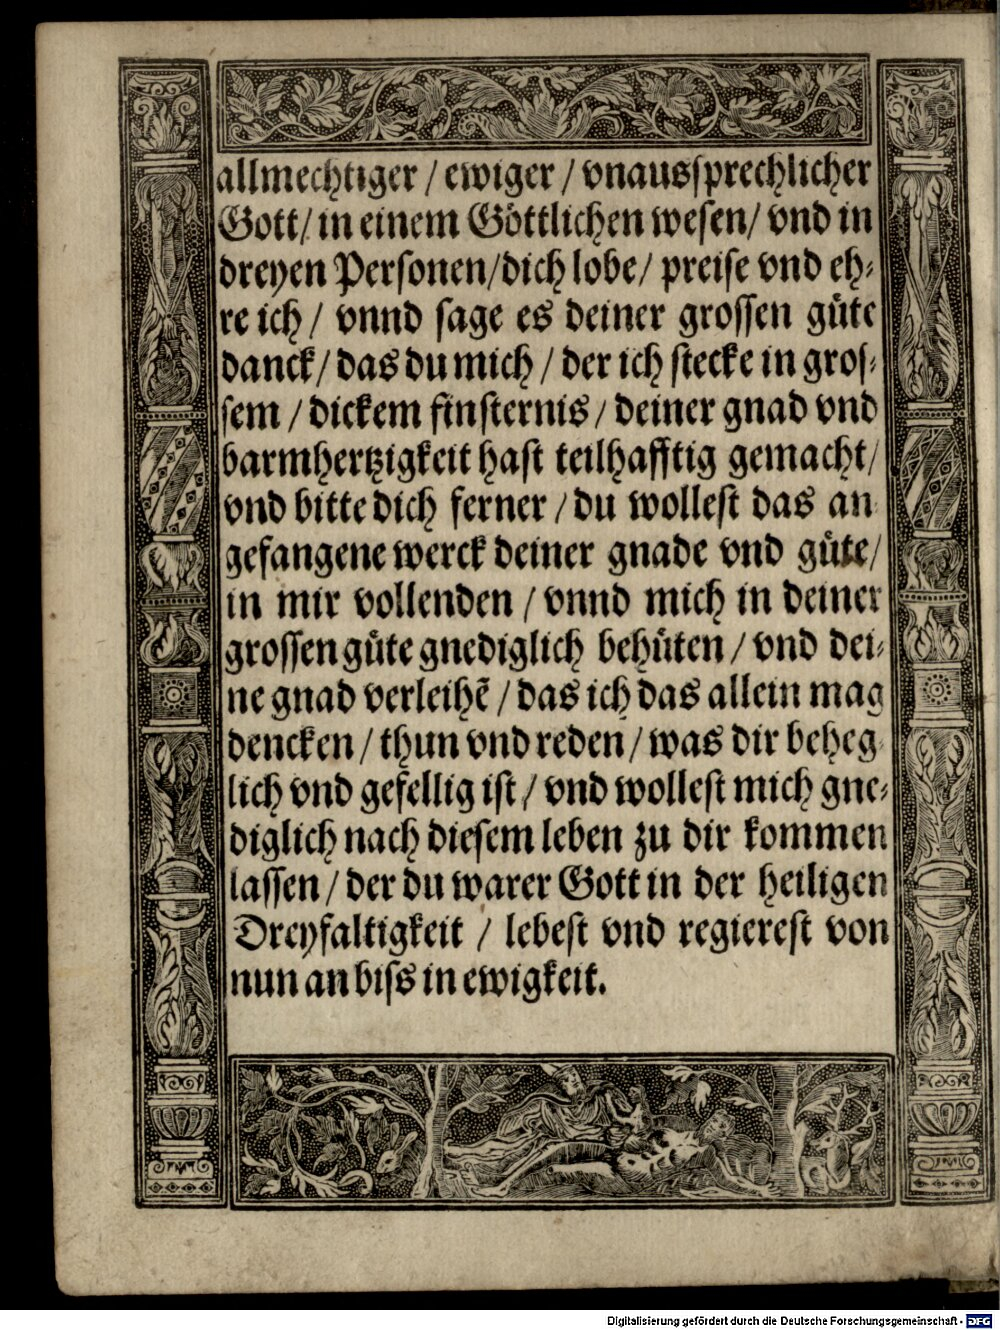 allmechtiger / ewiger / vnaussprechlicher
Gott / in einem Göttlichen wesen / vnd in
dreyen Personen / dich lobe / preise vnd eh⸗
re ich / vnnd sage es deiner grossen gůte
danck / das du mich / der ich stecke in gros⸗
sem / dickem finsternis / deiner gnad vnd
barmhertzigkeit hast teilhafftig gemacht /
vnd bitte dich ferner / du wollest das an
gefangene werck deiner gnade vnd gůte /
in mir vollenden / vnnd mich in deiner
grossen gůte gnediglich behůten / vnd dei⸗
ne gnad verleihē / das ich das allein mag
dencken / thun vnd reden / was dir beheg
lich vnd gefellig ist / vnd wollest mich gne⸗
diglich nach diesem leben zu dir kommen
lassen / der du warer Gott in der heiligen
Dreyfaltigkeit / lebest vnd regierest von
nun an biss in ewigkeit.
Digitalisierung gefördert durch die Deutsche Forschungsgemeinschaft - DFG